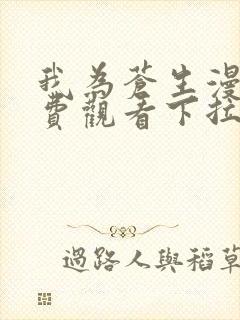 我為蒼生漫
費觀看下拉
過路人與稻草